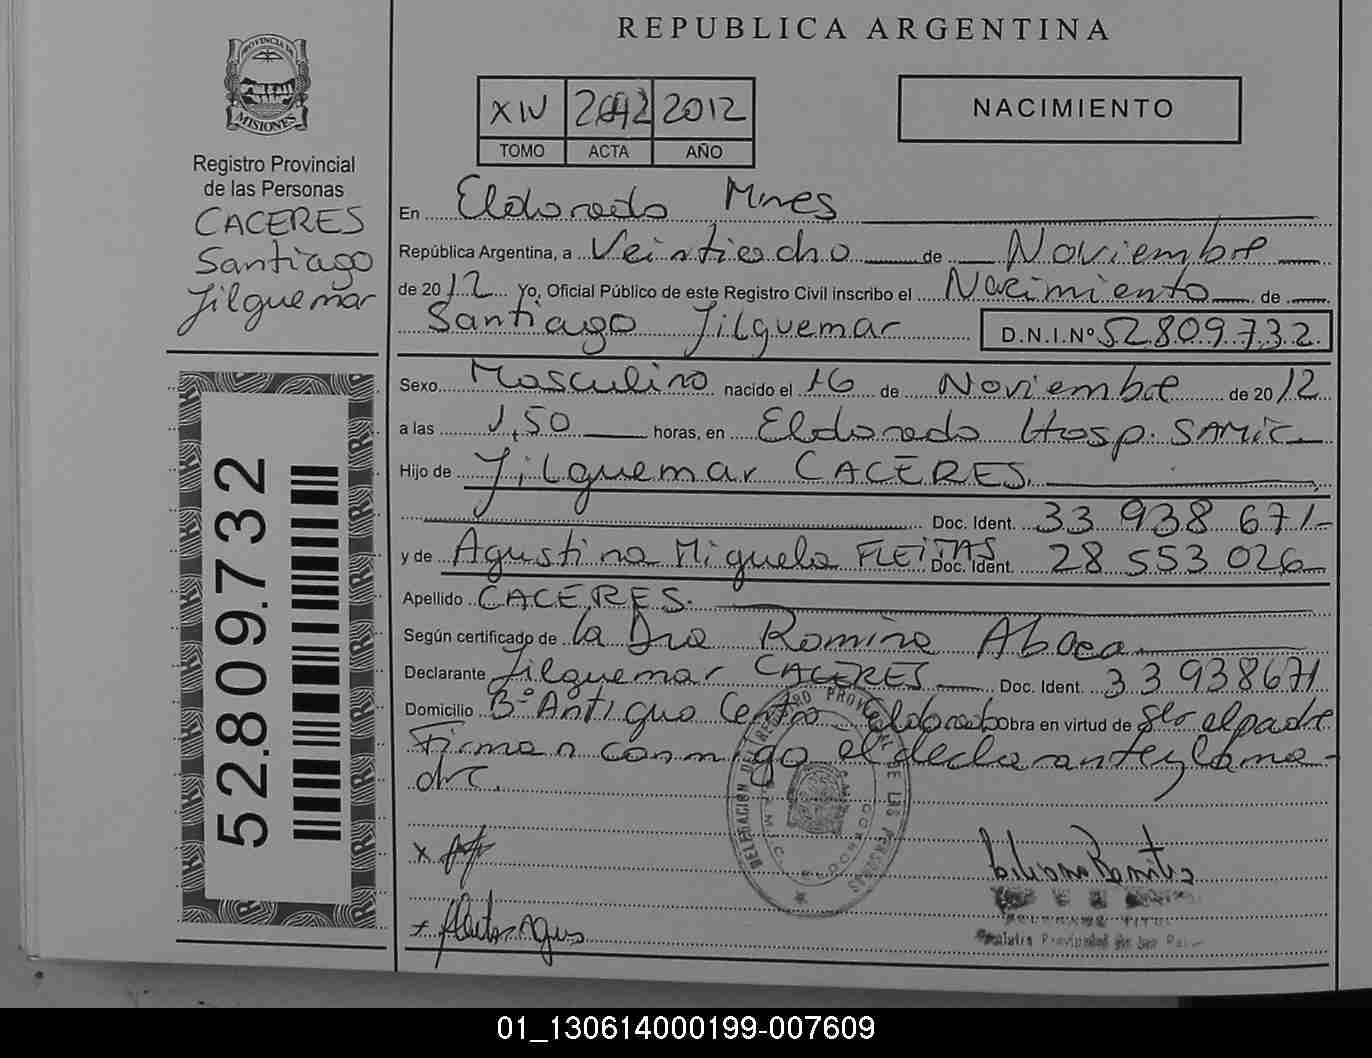 REPUBLICA ARGENTINA
PROVINCIA DE
MISIONES
Registro Provincial
de las Personas
CACERES
Santiago
Jilguemar
52.809.732
XIV 2012
TOMO ACTA AÑO
NACIMIENTO
En Eldorado Mnes
República Argentina, a Veintiocho de Noviembre
de 2012 Yo, Oficial Público de este Registro Civil inscribo el Nacimiento de
Santiago Jilguemar D.N.I.Nº 52.809.732
Sexo Masculino nacido el 16 de Noviembre de 2012
a las 1,50 horas, en Eldorado Hosp. SAMIC
Hijo de Jilguemar CACERES
Doc. Ident. 33 938 671
y de Agustina Miguela FLEITAS Doc. Ident. 28 553 026
Apellido CACERES
Según certificado de la Dra Romina
Declarante Jilguemar CACERES Doc. Ident. 33 938671
Domicilio Bº Antiguo Centro Eldorado obra en virtud de ser el padre
Firman conmigo el declarante y la ma-
dre.
DELEGACION DEL REGISTRO PROVINCIAL DE LAS PERSONAS
x
x
01_130614000199-007609